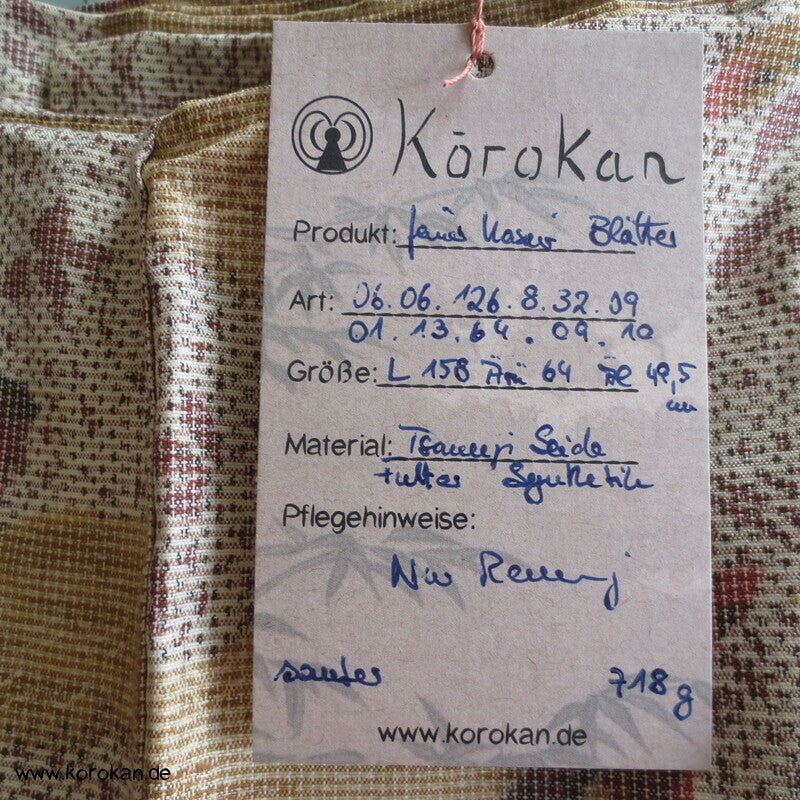 Kōrokan
Produkt: feines Kasuri Blätter
Art: 06.06.126.8.32.09
01.13.64.09.10
Größe: L 158 Äm 64 Äl 49,5
cm
Material: Tsumugi Seide
Futter Synthetik
Pflegehinweise:
Nur Reinig
sauber
718 g
www.korokan.de
www.korokan.de